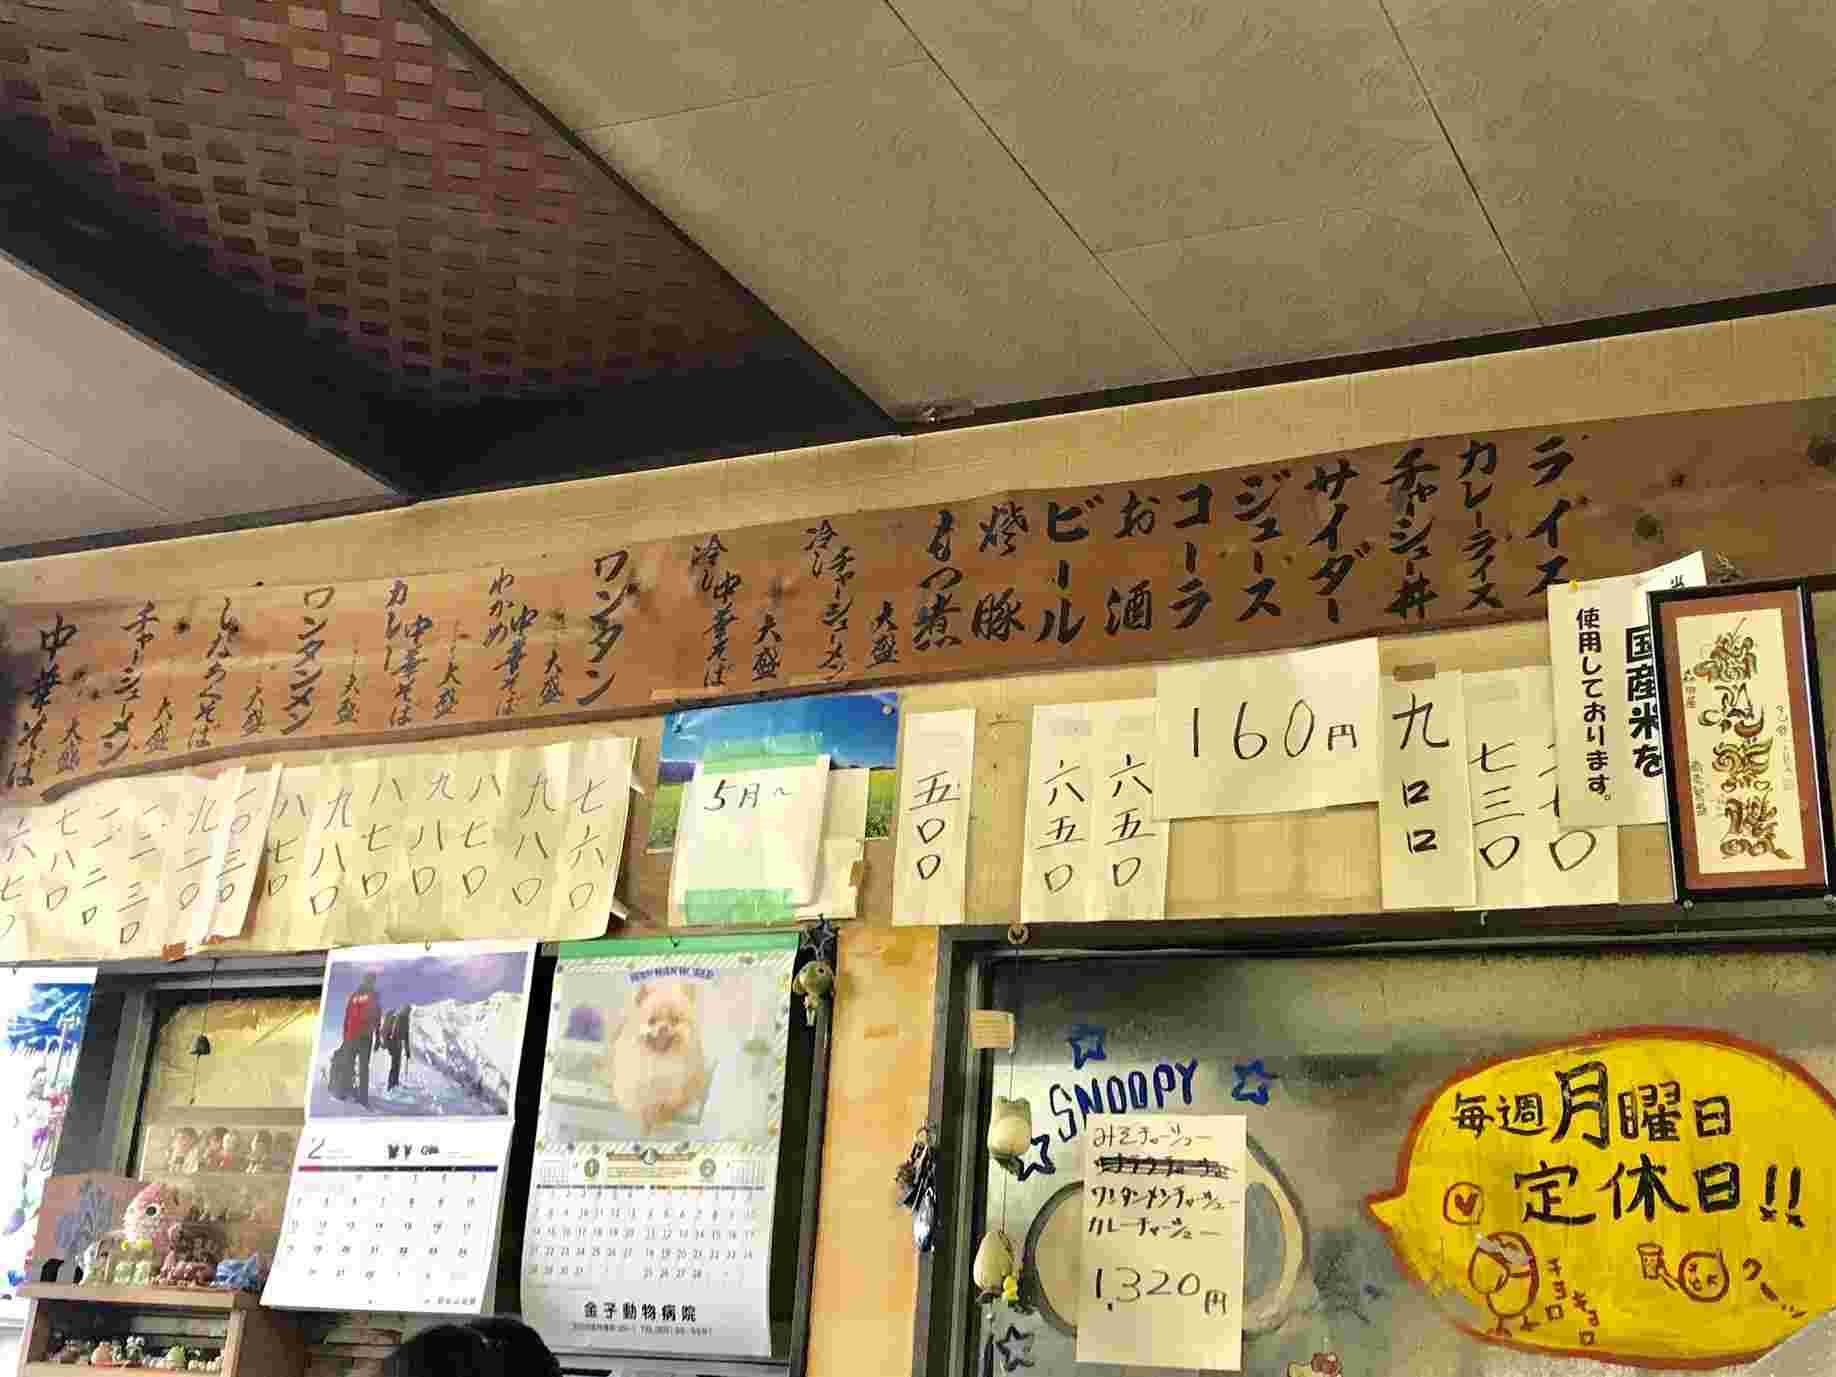 ライス
カレーライス
チャーシュー丼
サイダー
ジュース
コーラ
お酒
ビール
焼豚
もつ煮
冷しチャーシューメン
大盛
冷し中華そば
大盛
ワンタン
わかめ中華そば
大盛
カレー中華そば
大盛
ワンタンメン
大盛
しなちくそば
大盛
チャーシューメン
大盛
中華そば
大盛
国産米を
使用しております。
七三〇
九〇〇
160円
六五〇
六五〇
五〇〇
5月〜
七六〇
九八〇
八七〇
九八〇
八七〇
九八〇
八七〇
一〇三〇
九二〇
一一三〇
一一二〇
七八〇
六七〇
SNOOPY
みそチャーシュー
ワンタンメンチャーシュー
カレーチャーシュー
1,320円
毎週月曜日
定休日!!
2
金子動物病院